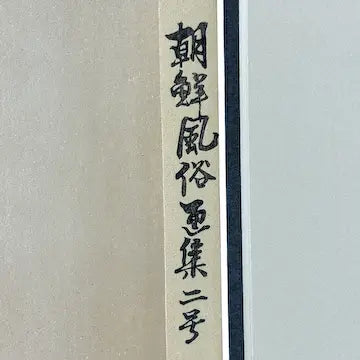 朝鮮風俗画集二号